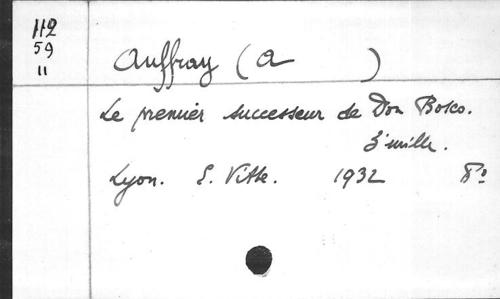 112
59
11
Auffray (A )
Le premier successeur de Don Bosco.
3e mille.
Lyon. E. Vitte. 1932 8º